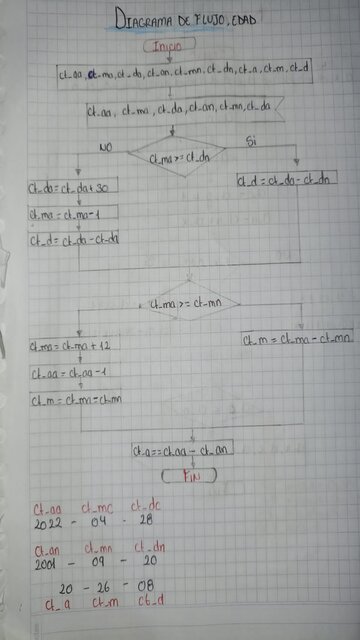 DIAGRAMA DE FLUJO, EDAD
Inicio
ct_aa, ct_ma, ct_da, ct_an, ct_mn, ct_dn, ct_a, ct_m, ct_d
ct_aa, ct_ma, ct_da, ct_an, ct_mn, ct_da
NO
Si
ct_ma >= ct_dn
ct_da = ct_da+30
ct_d = ct_da - ct_dn
ct_ma = ct_ma-1
ct_d = ct_da - ct_da
ct_ma >= ct_mn
ct_ma = ct_ma + 12
ct_m = ct_ma - ct_mn
ct_aa = ct_aa-1
ct_m = ct_mi = ct_mn
ct_a == ct_aa - ct_an
FIN
ct_aa ct_mc ct_dc
2022 - 04 - 28
ct_an ct_mn ct_dn
2001 - 09 - 20
20 - 26 - 08
ct_a ct_m ct_d